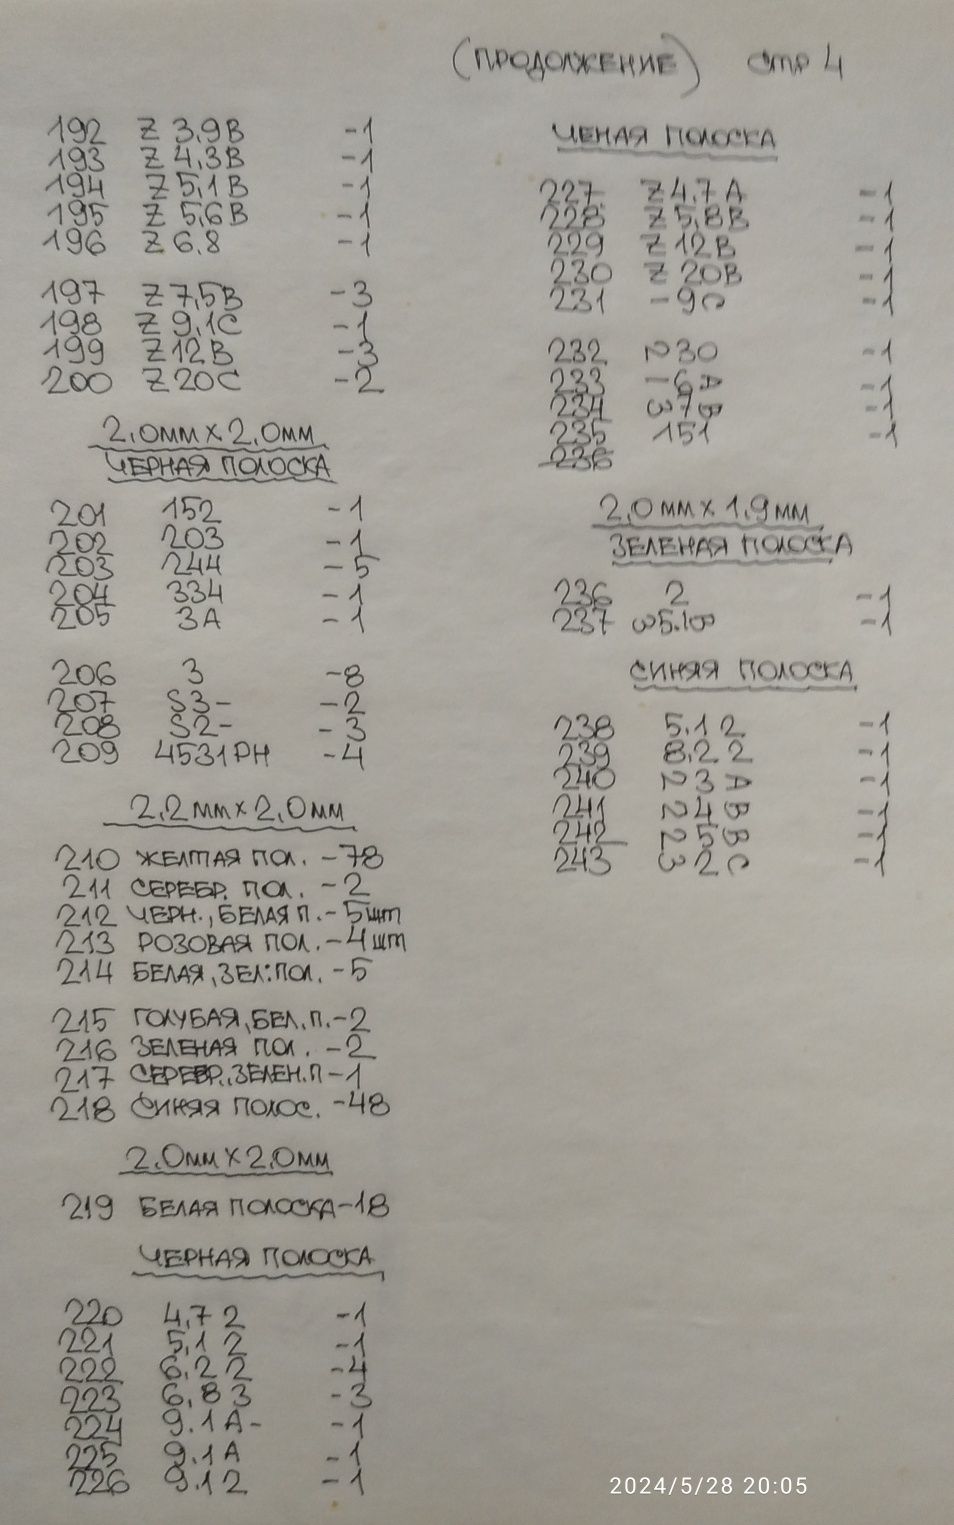 (ПРОДОЛЖЕНИЕ) стр 4
192 Z 3,9В -1
193 Z 4,3В -1
194 Z 5,1В -1
195 Z 5,6В -1
196 Z 6,8 -1
197 Z 7,5В -3
198 Z 9,1С -1
199 Z 12В -3
200 Z 20С -2
2,0ММ х 2,0ММ
ЧЕРНАЯ ПОЛОСКА
201 152 -1
202 203 -1
203 244 -5
204 334 -1
205 3А -1
206 3 -8
207 S3- -2
208 S2- -3
209 4531РН -4
2,2ММ х 2,0ММ
210 ЖЕЛТАЯ ПОЛ. -78
211 СЕРЕБР. ПОЛ. -2
212 ЧЕРН., БЕЛАЯ П. -5шт
213 РОЗОВАЯ ПОЛ. -4шт
214 БЕЛАЯ, ЗЕЛ. ПОЛ. -5
215 ГОЛУБАЯ, БЕЛ. П. -2
216 ЗЕЛЕНАЯ ПОЛ. -2
217 СЕРЕБР., ЗЕЛЕН. П -1
218 СИНЯЯ ПОЛОС. -48
2,0ММ х 2,0ММ
219 БЕЛАЯ ПОЛОСКА -18
ЧЕРНАЯ ПОЛОСКА
220 4,7 2 -1
221 5,1 2 -1
222 6,2 2 -4
223 6,8 3 -3
224 9.1А- -1
225 9.1А -1
226 9.12 -1
ЧЕНАЯ ПОЛОСКА
227 Z 4,7 А -1
228 Z 5,8В -1
229 Z 12В -1
230 Z 20В -1
231 -9С -1
232 230 -1
233 -6А -1
234 37В -1
235 151 -1
236
2,0 ММ х 1,9 ММ
ЗЕЛЕНАЯ ПОЛОСКА
236 2 -1
237 -1
СИНЯЯ ПОЛОСКА
238 5,1 2 -1
239 8,2 2 -1
240 2 3 А -1
241 2 4 В -1
242 2 5 В -1
243 3 2 С -1
2024/5/28 20:05